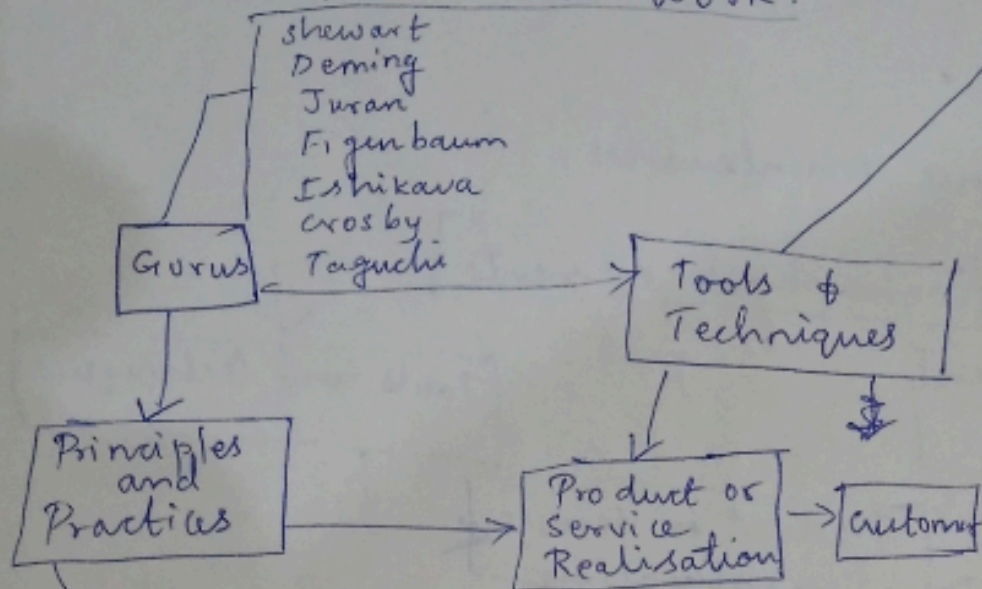 work.
shewart
Deming
Juran
Figenbaum
Ishikava
crosby
Taguchi
Gurus
Tools &
Techniques
Principles
and
Practices
Product or
Service
Realisation